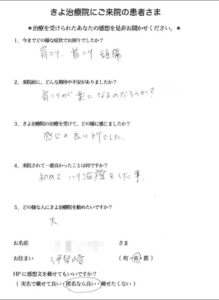 きよ治療院にご来院の患者さま
＊治療を受けられたあなたの感想を是非お聞かせください。＊
1、今までどの様な症状でお困りでしたか？
肩こり、首こり、頭痛
2、来院前に、どんな期待や不安がありましたか？
肩こりが楽になるのだろうか？
3、きよ治療院の治療を受けて、どの様に感じましたか？
感じの良い所でした。
4、来院されて一番良かったことは何ですか？
初めてハリ治療をした事
5、どの様な人にきよ治療院を勧めたいですか？
お名前 さま
お住まい （町・市・郡）
HPに感想文を載せてもいいですか？
（実名で載せて良い・匿名なら良い・載せたくない）